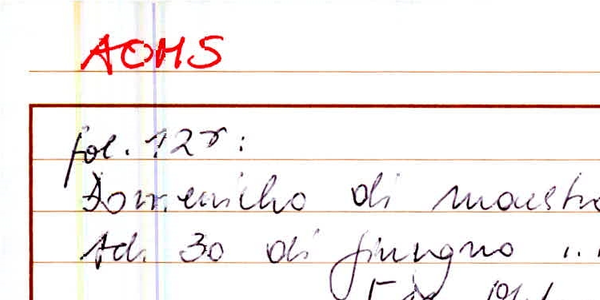 AOMS
fol. 12r:
Domenicho di maestro
Ad. 30 di giungno ...